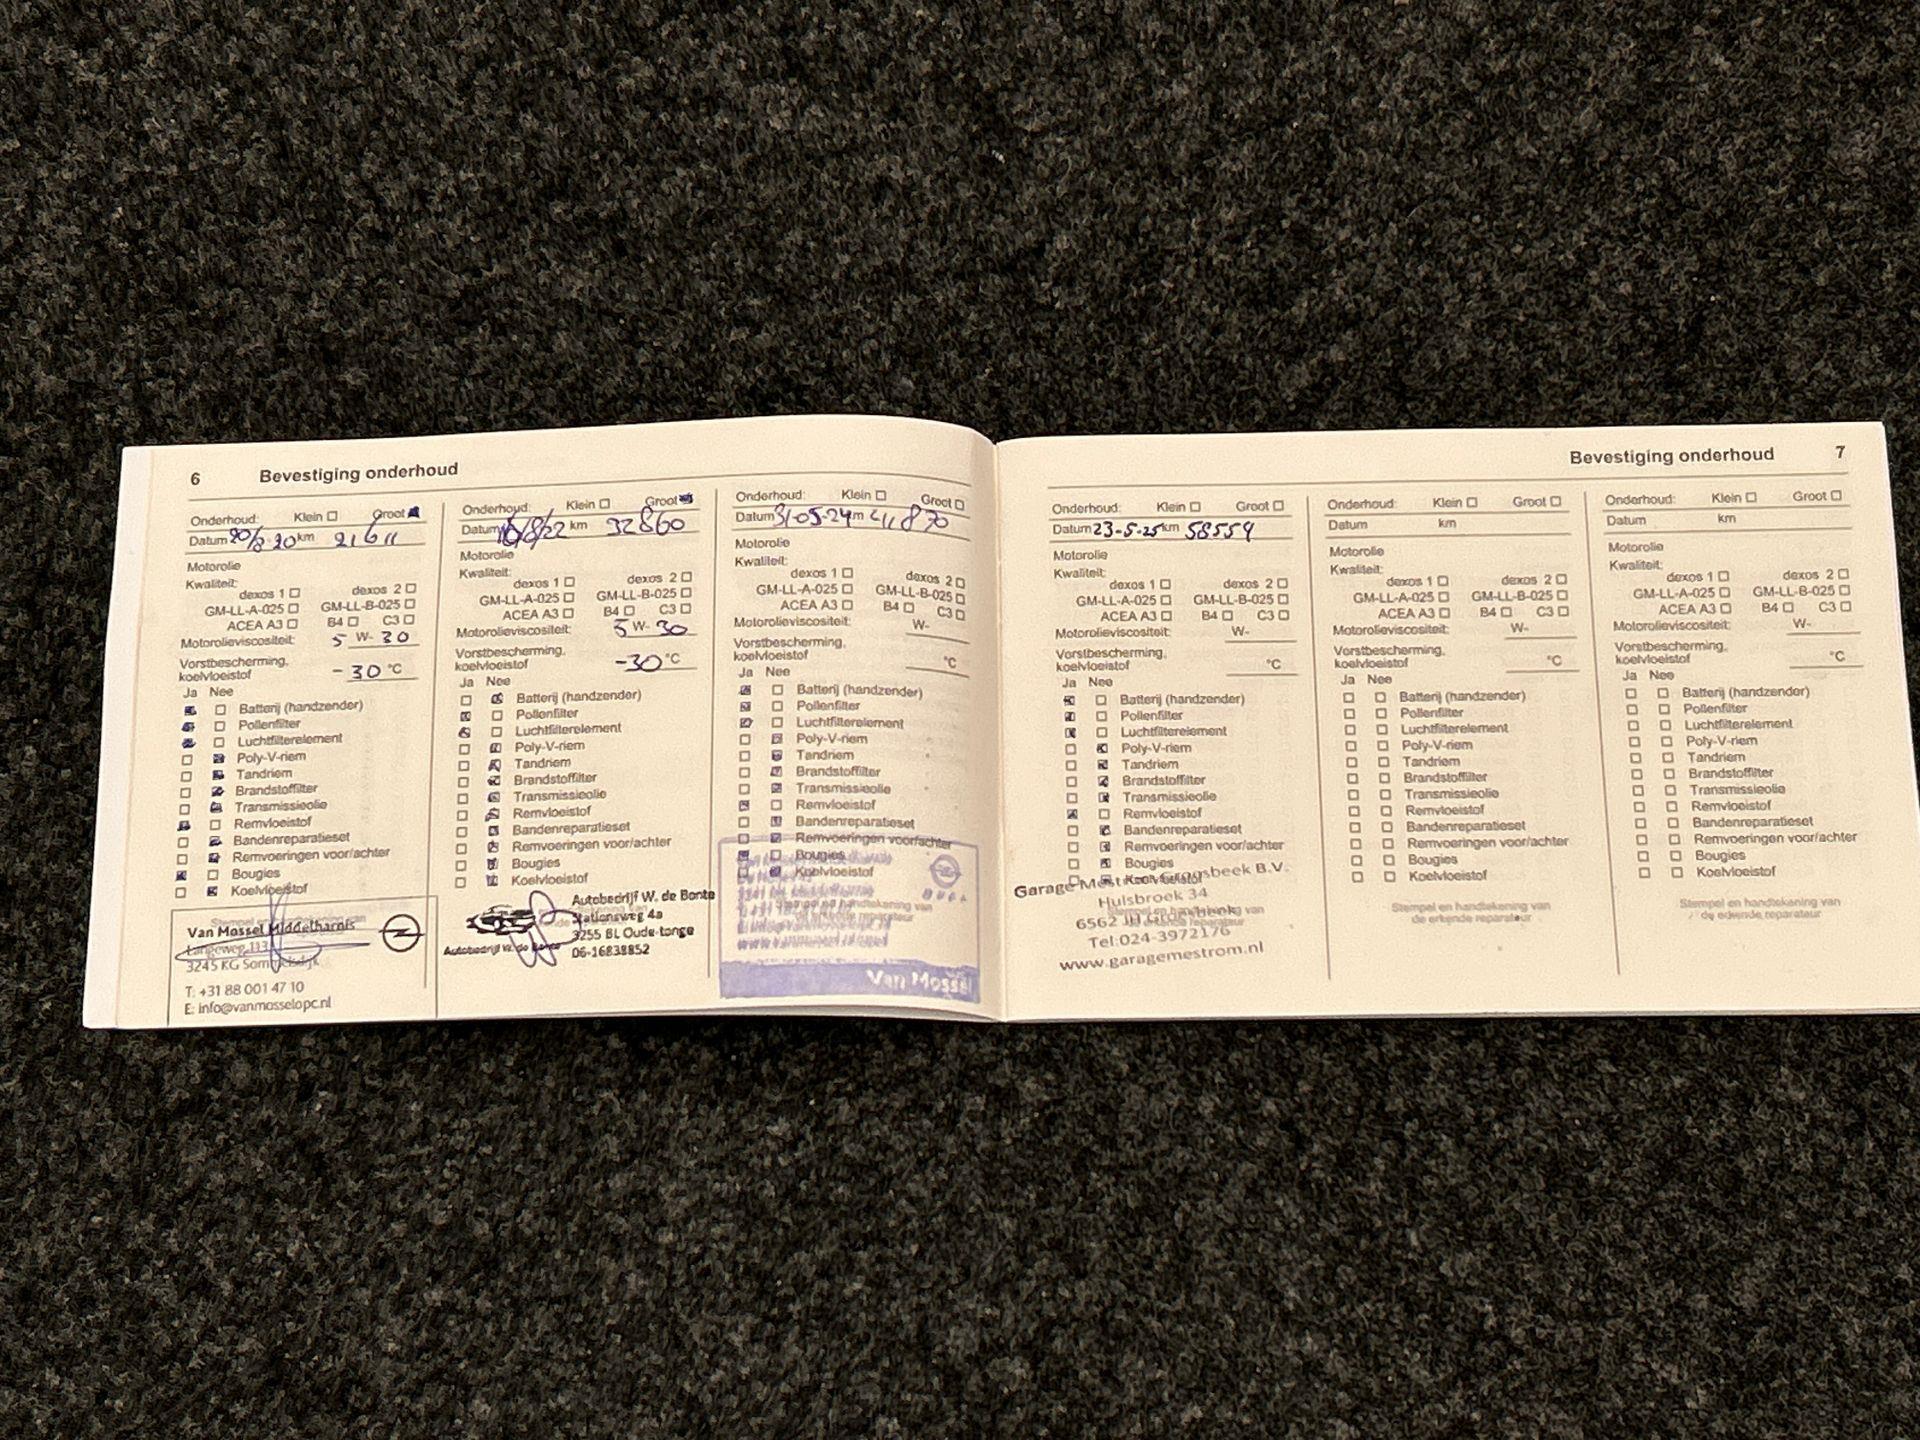 6 Bevestiging onderhoud
Onderhoud: Klein Groot
Datum 20/8-20 km 21611
Motorolie
Kwaliteit:
dexos 1 dexos 2
GM-LL-A-025 GM-LL-B-025
ACEA A3 B4 C3
Motorolieviscositeit: 5 W- 30
Vorstbescherming,
koelvloeistof - 30 °C
Ja Nee
Batterij (handzender)
Pollenfilter
Luchtfilterelement
Poly-V-riem
Tandriem
Brandstoffilter
Transmissieolie
Remvloeistof
Bandenreparatieset
Remvoeringen voor/achter
Bougies
Koelvloeistof
Stempel en handtekening van
Van Mossel Middelharnis
Langeweg 113
3245 KG Sommelsdijk
T: +31 88 001 47 10
E: info@vanmosselopc.nl
Onderhoud: Klein Groot
Datum 16/8/22 km 32860
Motorolie
Kwaliteit:
dexos 1 dexos 2
GM-LL-A-025 GM-LL-B-025
ACEA A3 B4 C3
Motorolieviscositeit: 5 W- 30
Vorstbescherming,
koelvloeistof -30 °C
Ja Nee
Batterij (handzender)
Pollenfilter
Luchtfilterelement
Poly-V-riem
Tandriem
Brandstoffilter
Transmissieolie
Remvloeistof
Bandenreparatieset
Remvoeringen voor/achter
Bougies
Koelvloeistof
Autobedrijf W. de Bonte
Stationsweg 4a
3255 BL Oude-tonge
06-16838852
Autobedrijf W. de Bonte
Onderhoud: Klein Groot
Datum 31-05-24 m 41870
Motorolie
Kwaliteit:
dexos 1 dexos 2
GM-LL-A-025 GM-LL-B-025
ACEA A3 B4 C3
Motorolieviscositeit: W-
Vorstbescherming,
koelvloeistof °C
Ja Nee
Batterij (handzender)
Pollenfilter
Luchtfilterelement
Poly-V-riem
Tandriem
Brandstoffilter
Transmissieolie
Remvloeistof
Bandenreparatieset
Remvoeringen voor/achter
Bougies
Koelvloeistof
Stempel en handtekening van
de erkende reparateur
Van Mossel
Bevestiging onderhoud 7
Onderhoud: Klein Groot
Datum 23-5-25 km 58554
Motorolie
Kwaliteit:
dexos 1 dexos 2
GM-LL-A-025 GM-LL-B-025
ACEA A3 B4 C3
Motorolieviscositeit: W-
Vorstbescherming,
koelvloeistof °C
Ja Nee
Batterij (handzender)
Pollenfilter
Luchtfilterelement
Poly-V-riem
Tandriem
Brandstoffilter
Transmissieolie
Remvloeistof
Bandenreparatieset
Remvoeringen voor/achter
Bougies
Koelvloeistof
Garage Mestrom Groesbeek B.V.
Hulsbroek 34
6562 JH Groesbeek
Stempel en handtekening van
de erkende reparateur
Tel:024-3972176
www.garagemestrom.nl
Onderhoud: Klein Groot
Datum km
Motorolie
Kwaliteit:
dexos 1 dexos 2
GM-LL-A-025 GM-LL-B-025
ACEA A3 B4 C3
Motorolieviscositeit: W-
Vorstbescherming,
koelvloeistof °C
Ja Nee
Batterij (handzender)
Pollenfilter
Luchtfilterelement
Poly-V-riem
Tandriem
Brandstoffilter
Transmissieolie
Remvloeistof
Bandenreparatieset
Remvoeringen voor/achter
Bougies
Koelvloeistof
Stempel en handtekening van
de erkende reparateur
Onderhoud: Klein Groot
Datum km
Motorolie
Kwaliteit:
dexos 1 dexos 2
GM-LL-A-025 GM-LL-B-025
ACEA A3 B4 C3
Motorolieviscositeit: W-
Vorstbescherming,
koelvloeistof °C
Ja Nee
Batterij (handzender)
Pollenfilter
Luchtfilterelement
Poly-V-riem
Tandriem
Brandstoffilter
Transmissieolie
Remvloeistof
Bandenreparatieset
Remvoeringen voor/achter
Bougies
Koelvloeistof
Stempel en handtekening van
de erkende reparateur